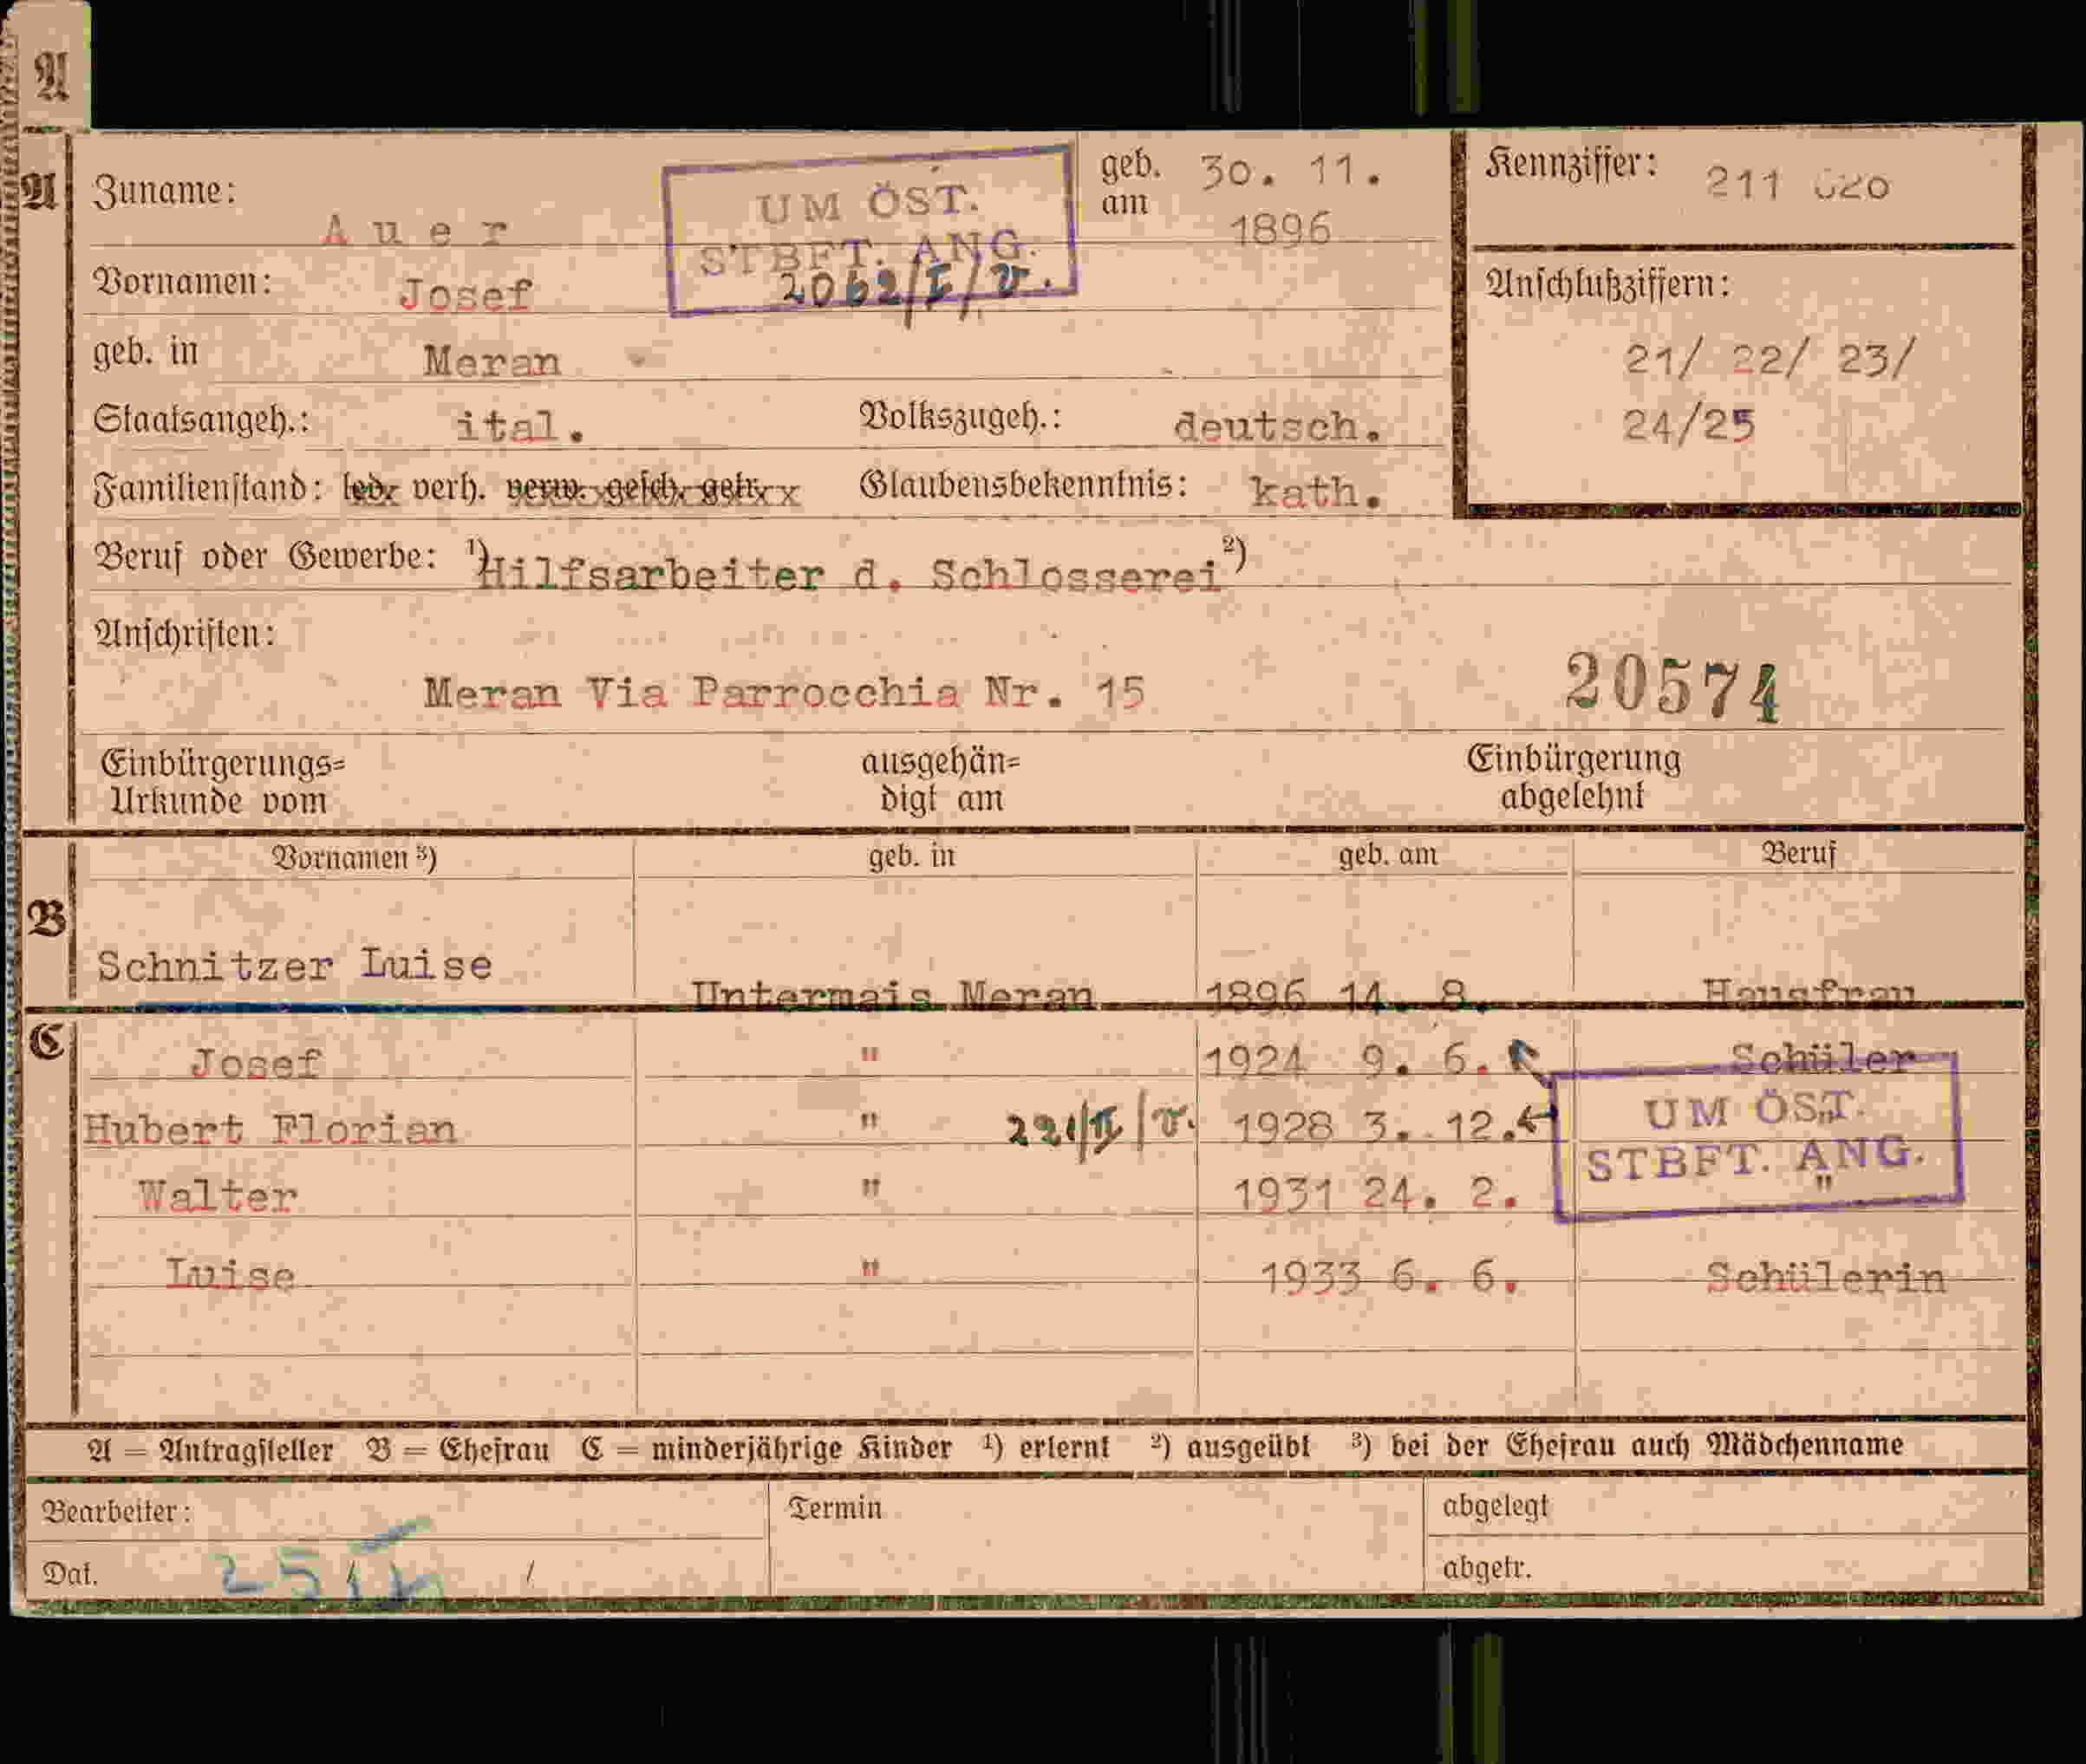 A
A
Zuname: Auer
UM ÖST.
STBFT. ANG.
2062/I/v.
geb. am 30. 11. 1896
Kennziffer: 211 020
Vornamen: Josef
Anschlußziffern:
21/ 22/ 23/
24/25
geb. in Meran
Staatsangeh.: ital. Volkszugeh.: deutsch.
Familienstand: led. verh. verw. gesch. getr. Glaubensbekenntnis: kath.
Beruf oder Gewerbe: ¹) Hilfsarbeiter d. Schlosserei ²)
Anschriften:
Meran Via Parrocchia Nr. 15
20574
Einbürgerungs=
Urkunde vom
ausgehän=
digt am
Einbürgerung
abgelehnt
Vornamen ³) geb. in geb. am Beruf
B
Schnitzer Luise Untermais Meran 1896 14. 8. Hausfrau
C
Josef " 1924 9. 6. Schüler
Hubert Florian " 1928 3. 12. "
UM ÖST.
STBFT. ANG.
Walter " 1931 24. 2. "
Luise " 1933 6. 6. Schülerin
A = Antragsteller B = Ehefrau C = minderjährige Kinder ¹) erlernt ²) ausgeübt ³) bei der Ehefrau auch Mädchenname
Bearbeiter: Termin abgelegt
Dat. abgetr.